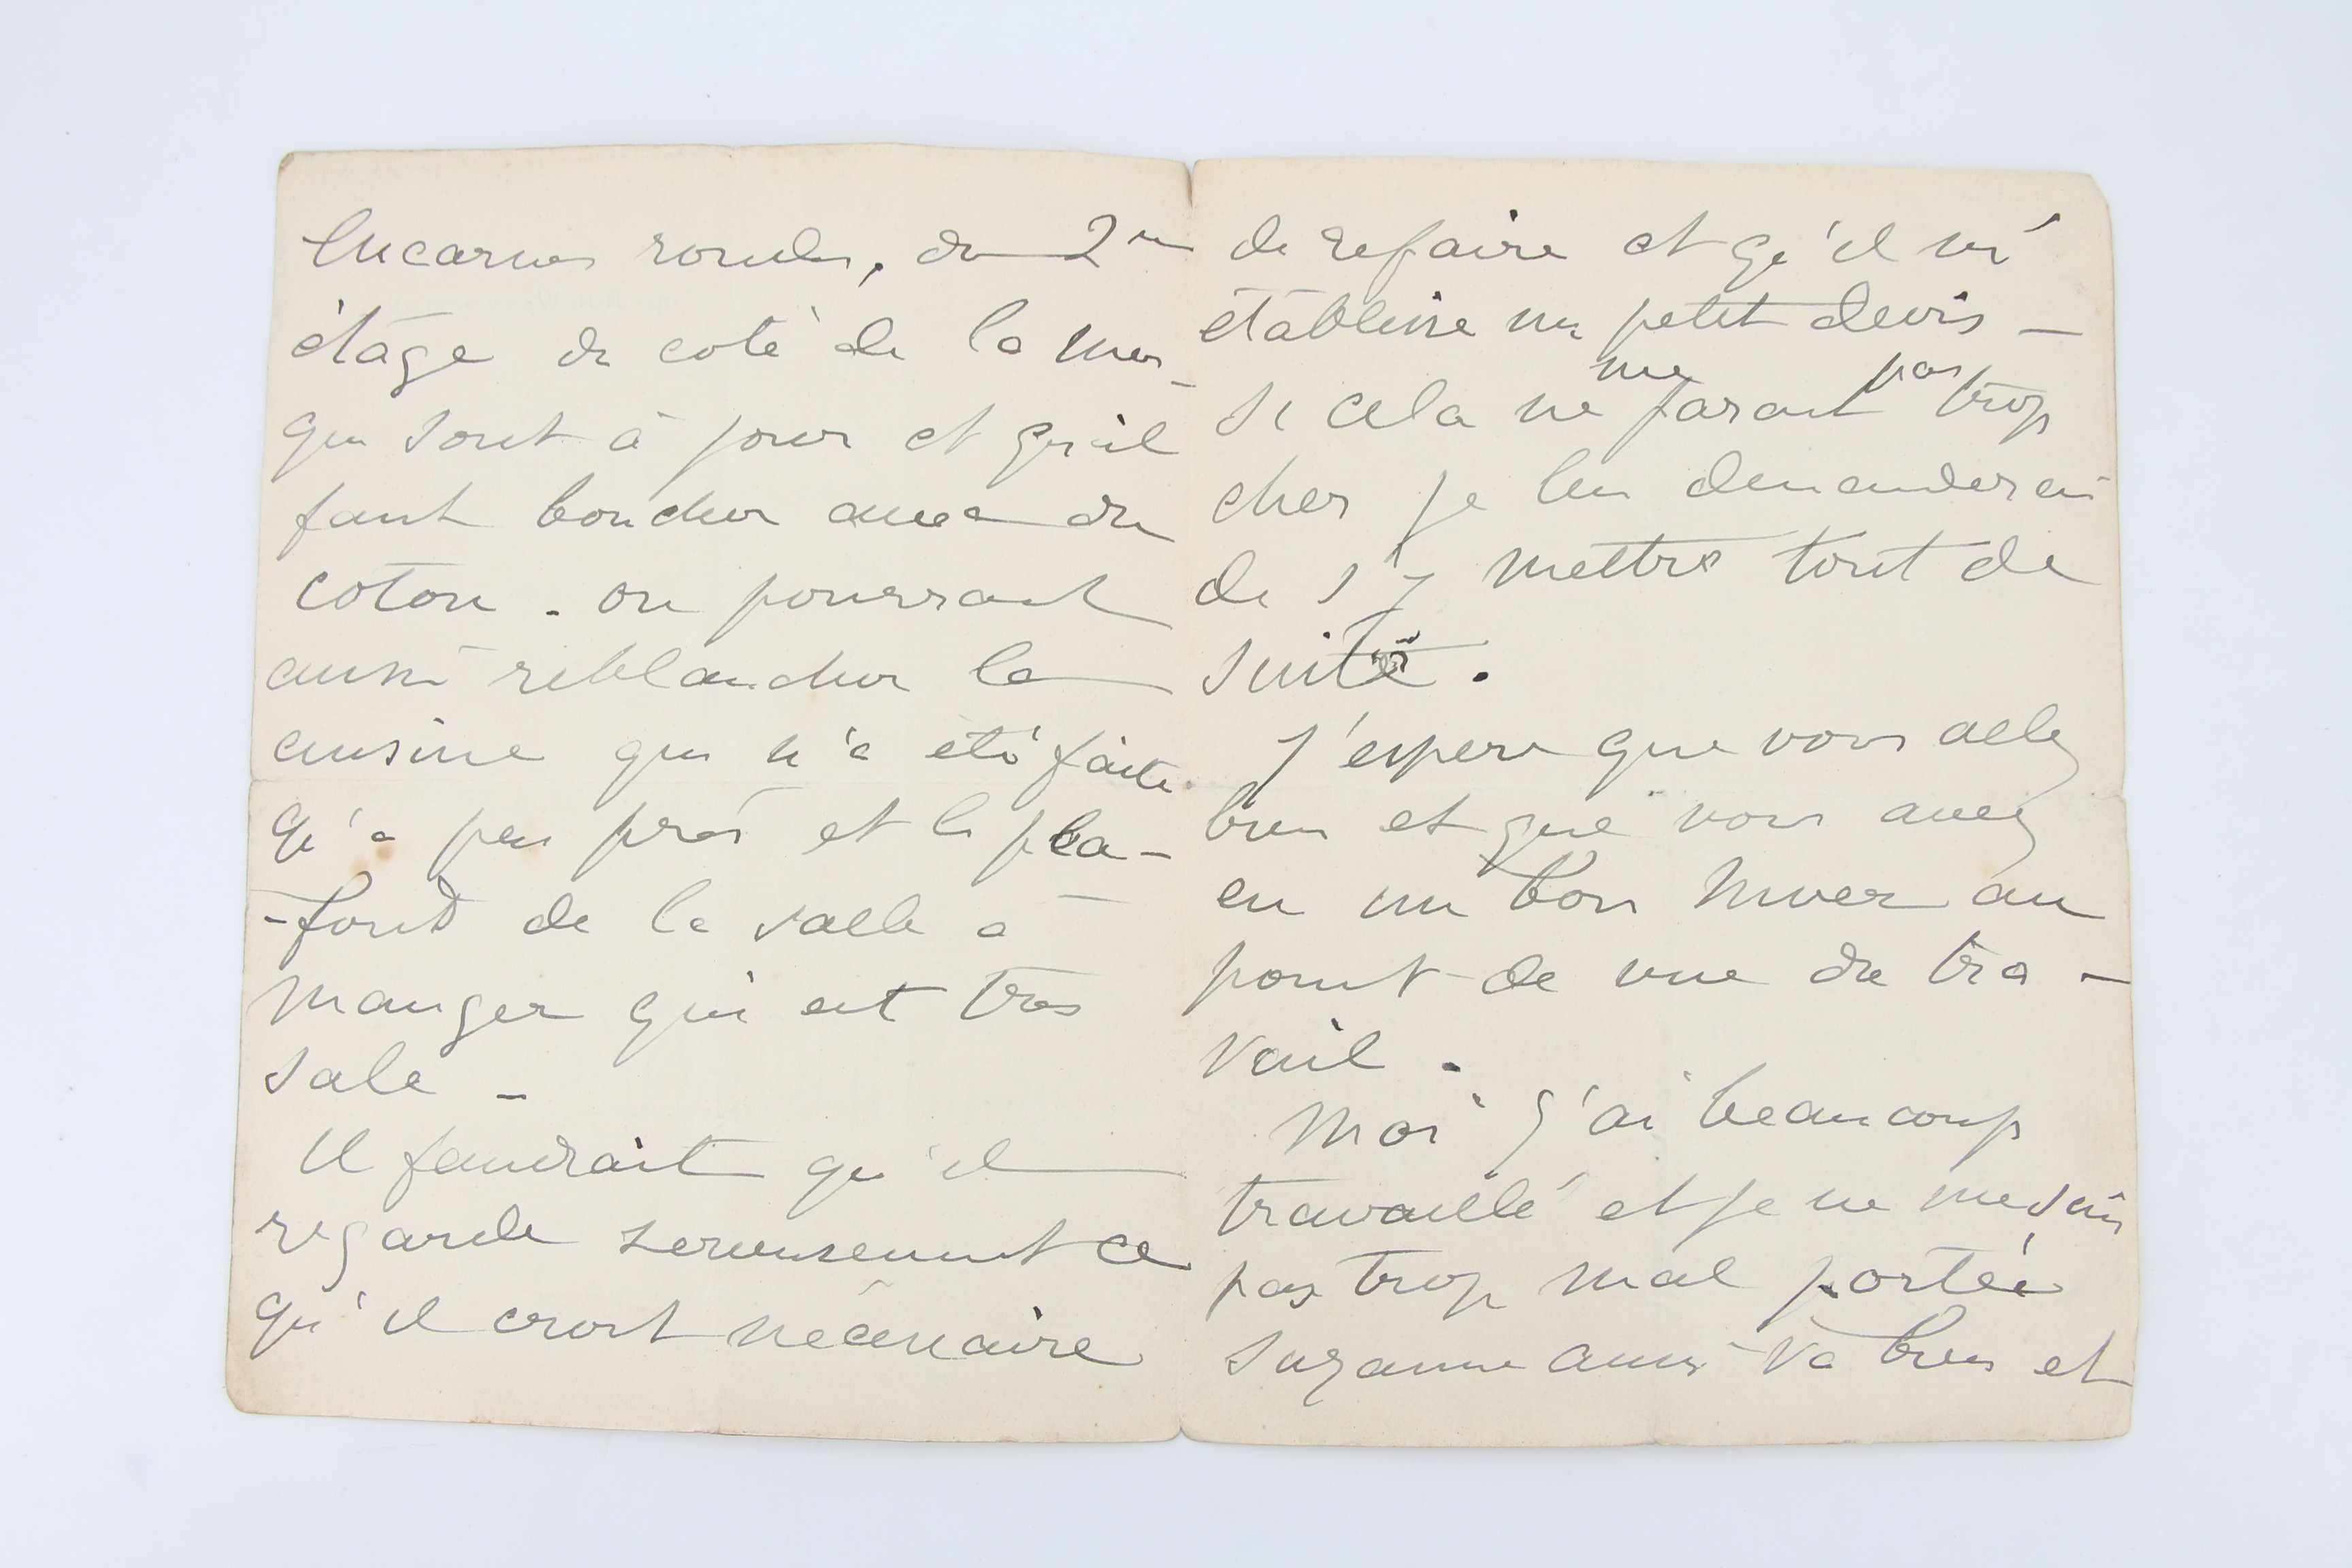 lucarnes rondes, du 2me
étage du coté de la mer_
qui sont à jour et qu'il
faut boucher avec du
coton. on pourrait
aussi reblanchir la
cuisine qui n'a été faite
qu'a peu près et le pla-
-fond de la salle a
manger qui est très
sale _
Il faudrait qu'il
regarde serieusement ce
qu'il croit nécessaire
de refaire et qu'il m'
établisse un petit devis _
Si cela ne me parait pas trop
cher je lui demanderai
de s'y mettre tout de
suite.
J'espere que vous allez
bien et que vous avez
eu un bon hiver au
point de vue du tra-
vail.
Moi j'ai beaucoup
travaillé et je ne me suis
pas trop mal portée
Suzanne aussi va bien et